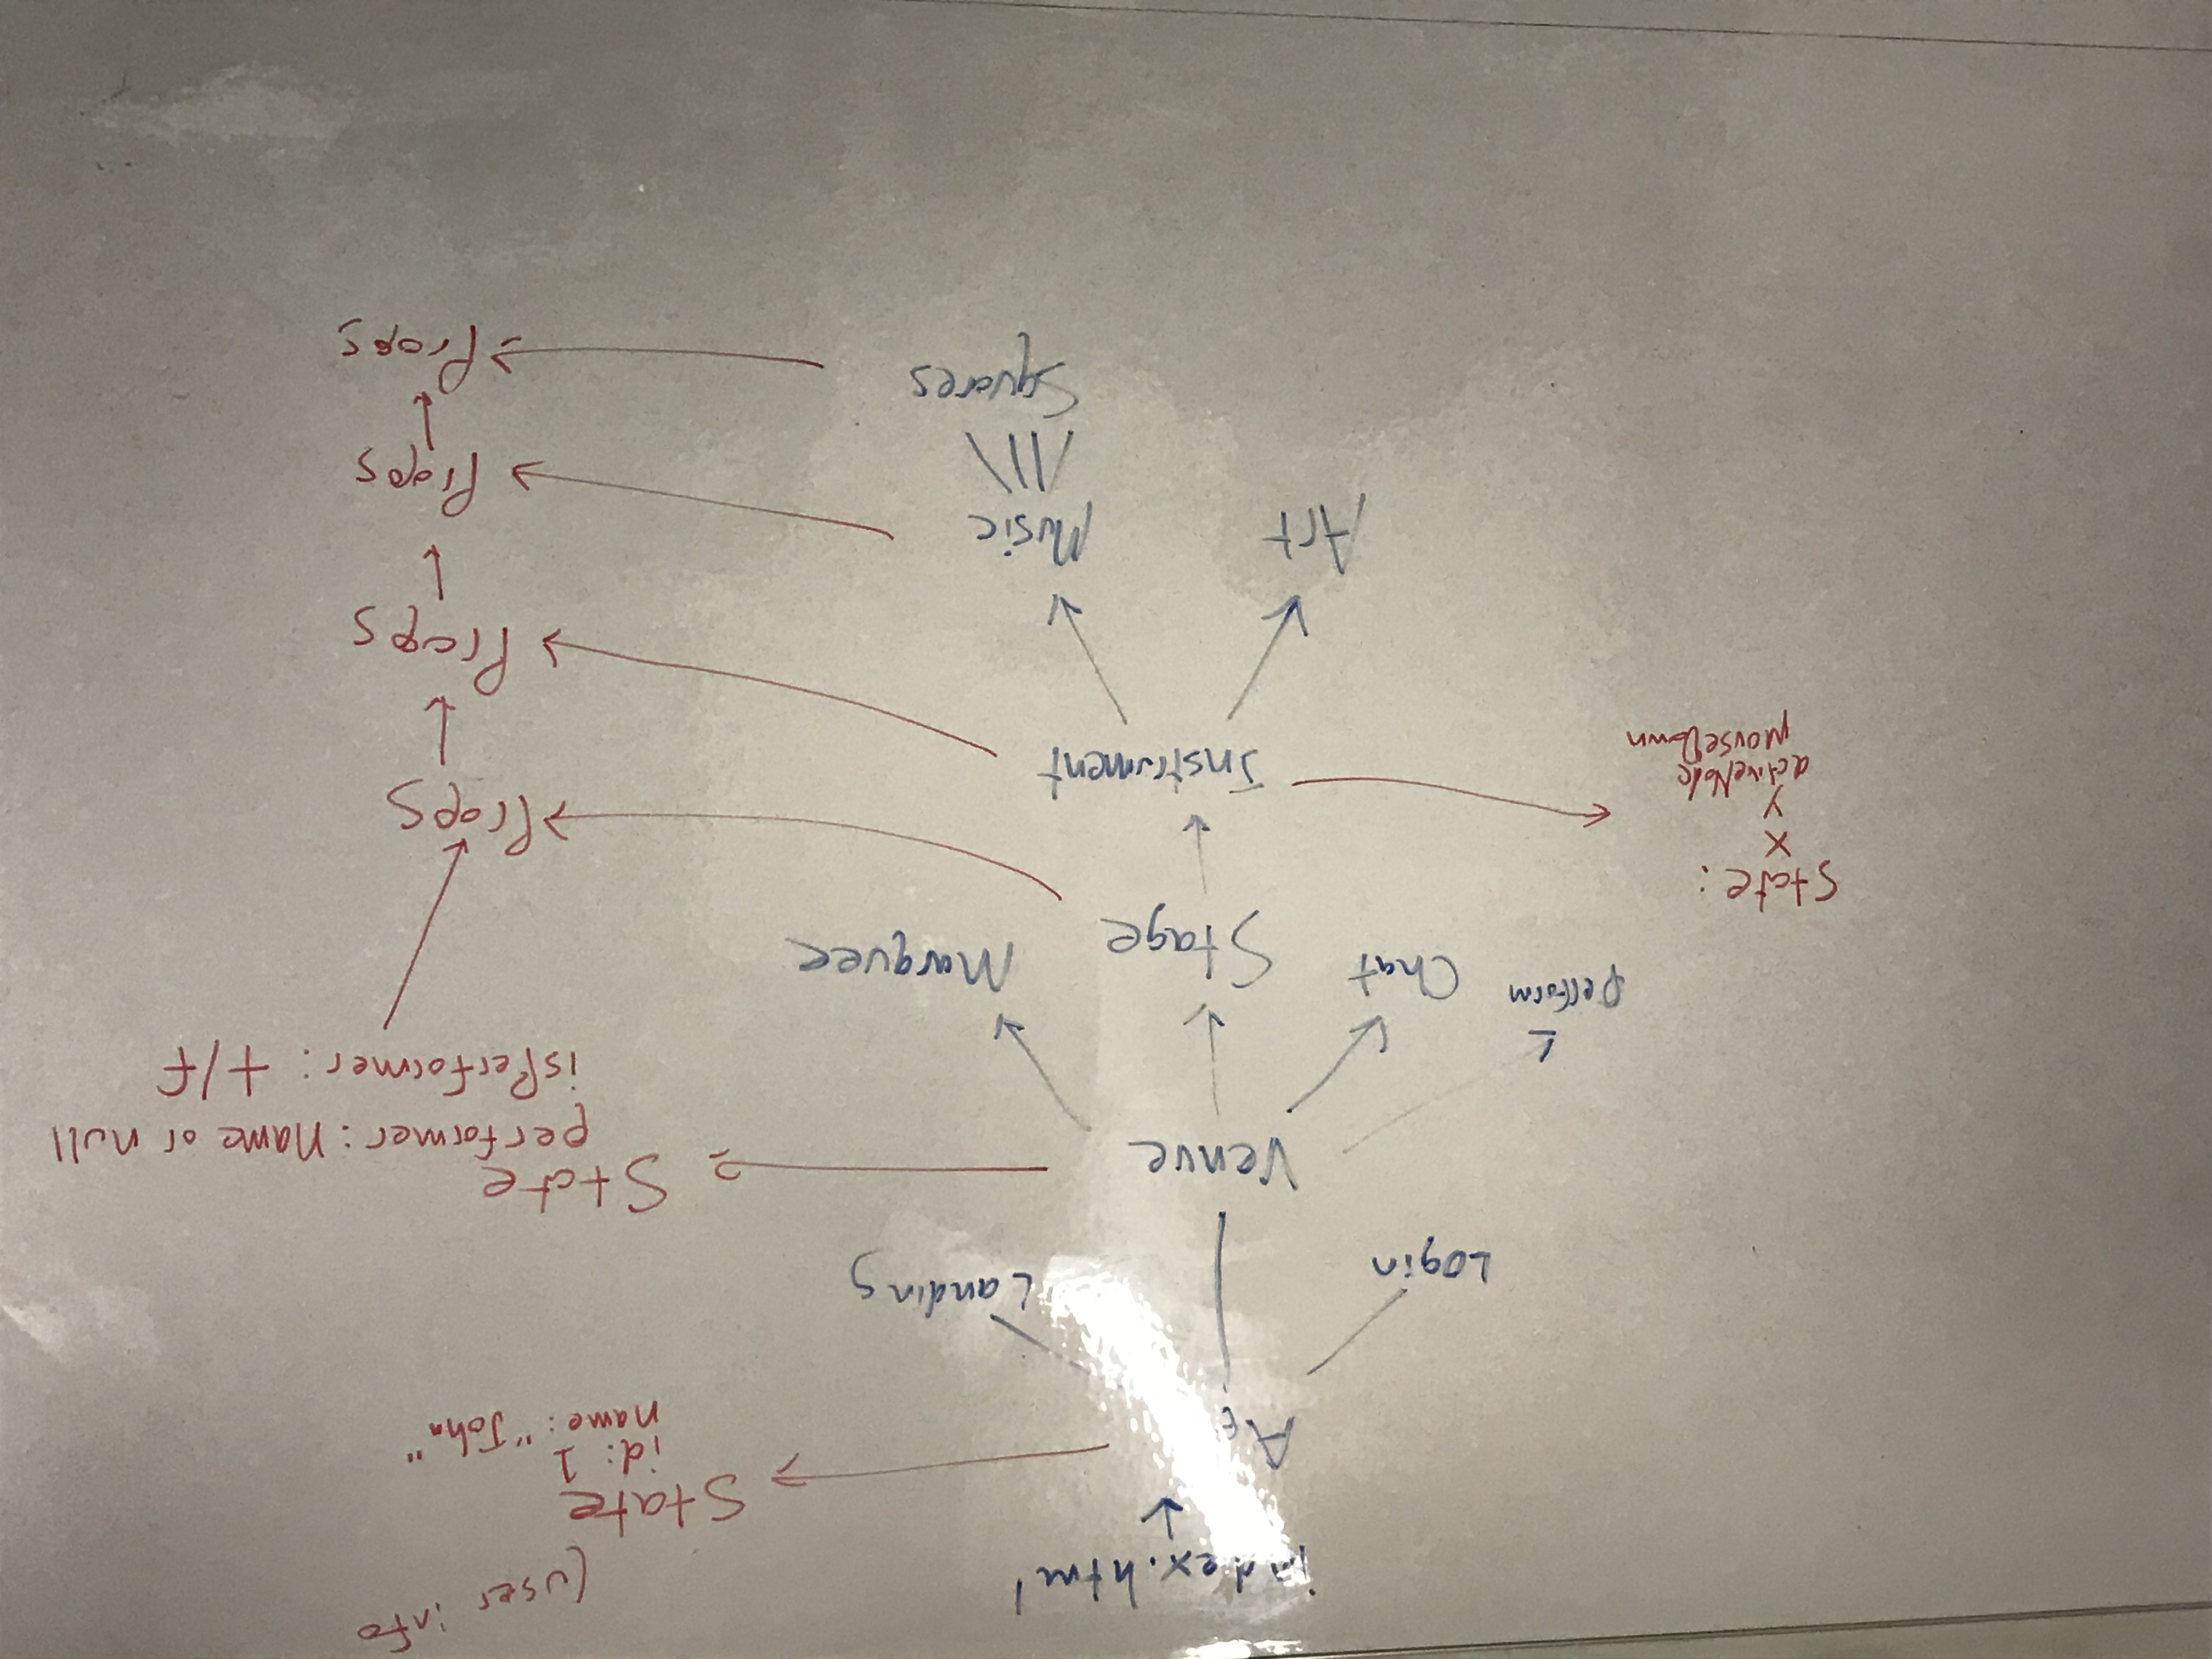 index.html
(user info
State
id: 1
name: "John"
Login
Landing
Venue
State
performer: name or null
isPerformer: t/f
perform
Chat
Stage
Marquee
State:
x
y
activeNode
mouseDown
Props
Instrument
Props
Art
Music
Props
Squares
Props